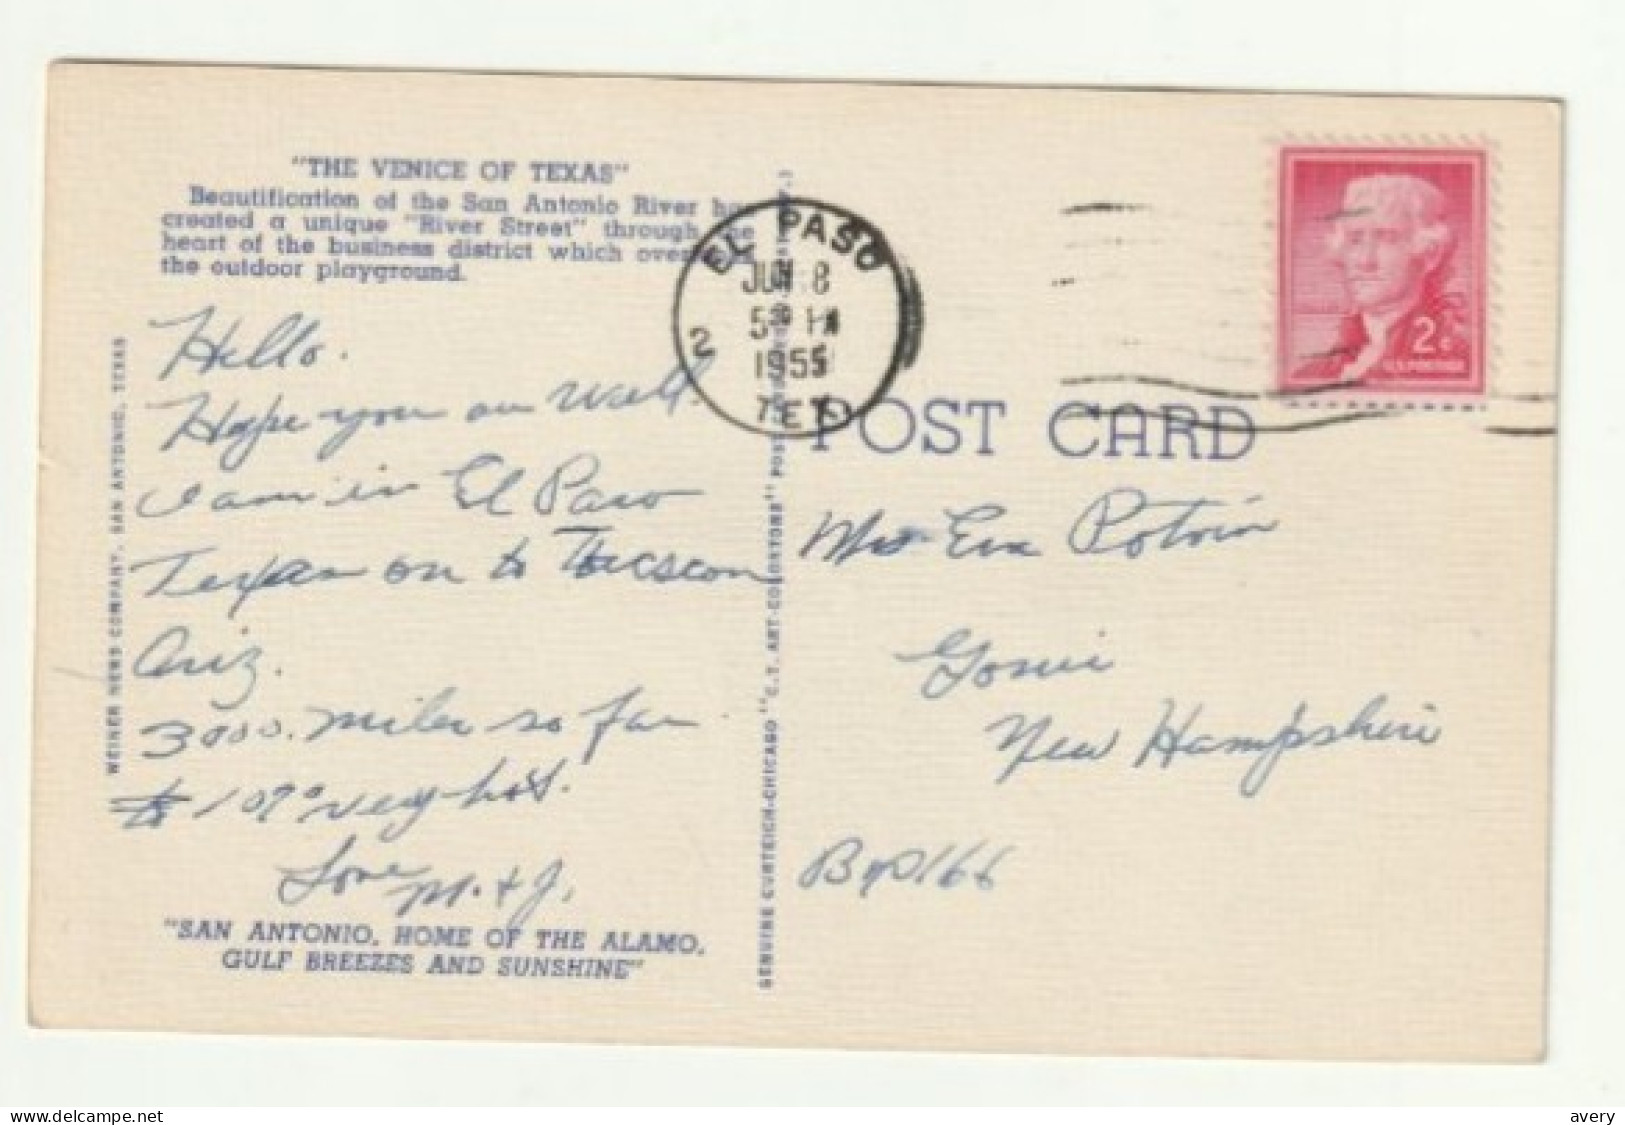 "THE VENICE OF TEXAS"
Beautification of the San Antonio River
created a unique "River Street" through
heart of the business district which
the outdoor playground.
Hello.
Hope you are well
I am in El Paso
Texas on to Tucson
Ariz.
3000. miles so far
& 109° very hot.
Love
M. & J.
"SAN ANTONIO, HOME OF THE ALAMO,
GULF BREEZES AND SUNSHINE"
WEINER NEWS COMPANY, SAN ANTONIO, TEXAS
GENUINE CURTEICH-CHICAGO "C.T. ART-COLORTONE" POST
EL PASO
JUN 8
5 PM
1955
2
TEX
2¢
U.S. POSTAGE
POST CARD
Mrs Eva Potvin
Gonic
New Hampshire
166
delcampe.net
avery